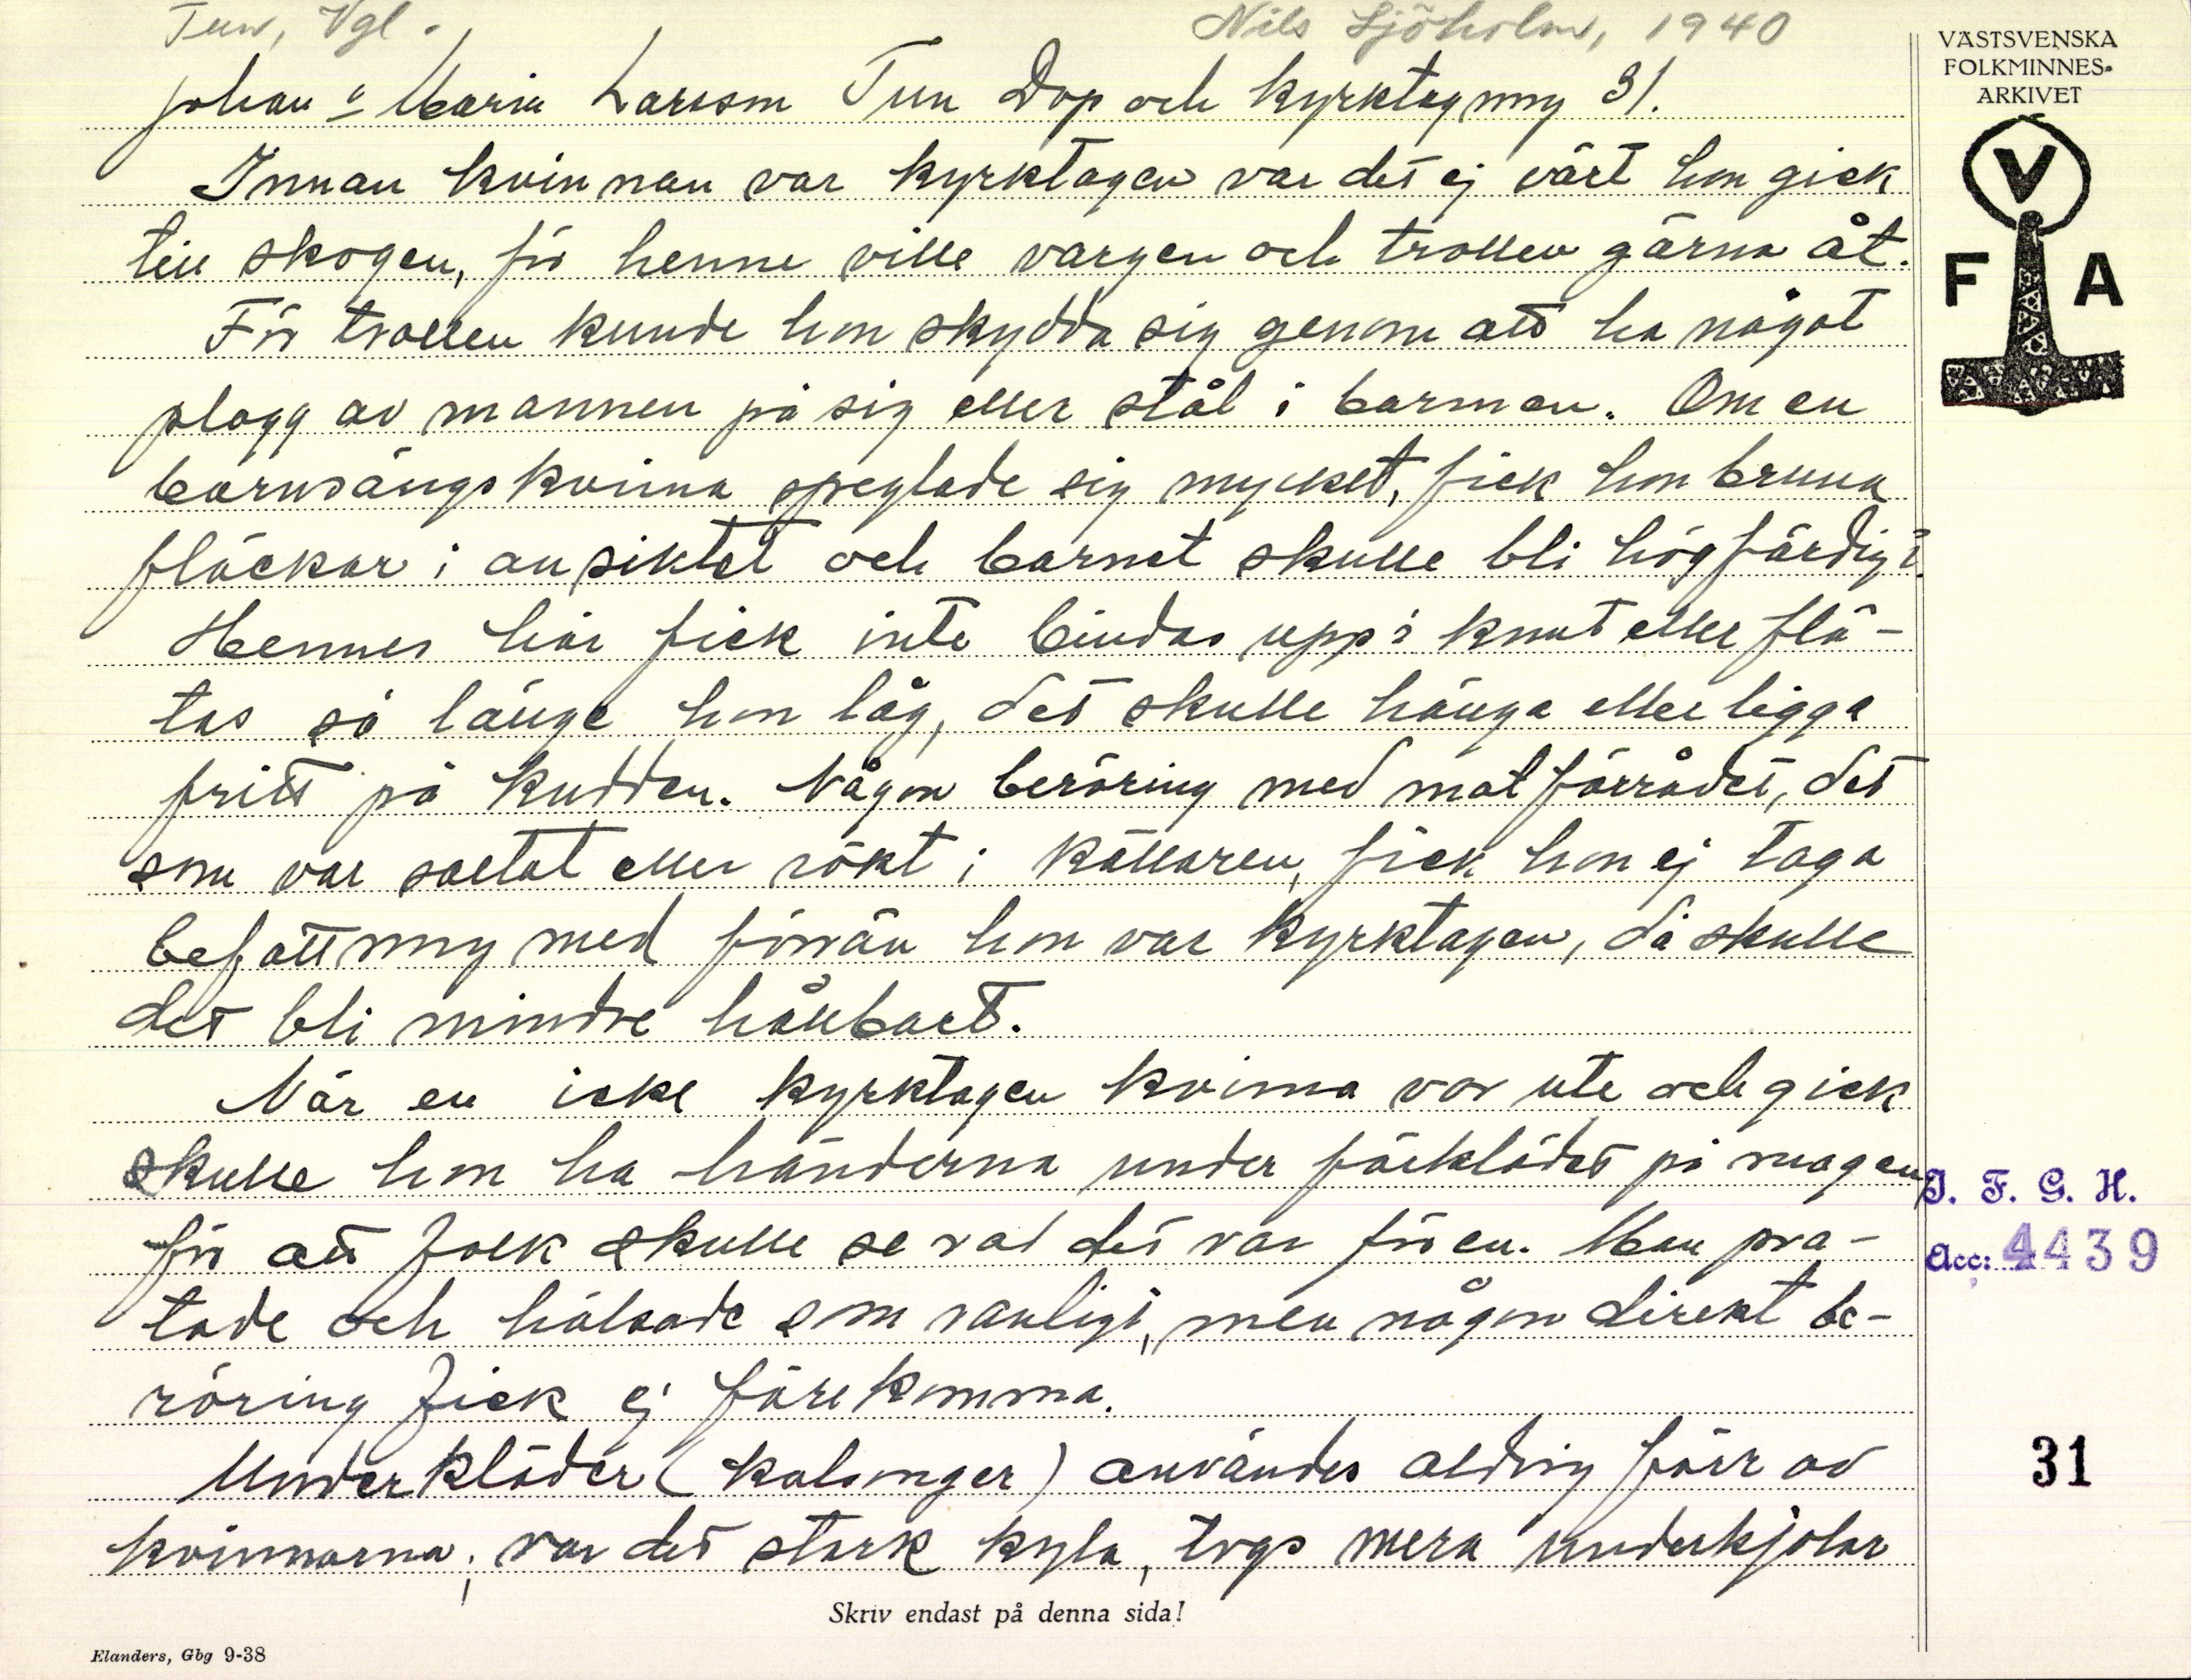 Tun, Vgl.
Nils Sjöholm, 1940
Johan o Maria Larsson Tun Dop och kyrktagning 31.
Innan kvinnan var kyrktagen var det ej värt hon gick
till skogen, för henne ville vargen och trollen gärna åt.
För trollen kunde hon skydda sig genom att ha något
plagg av mannen på sig eller stål i barmen. Om en
barnsängskvinna speglade sig mycket, fick hon bruna
fläckar i ansiktet och barnet skulle bli högfärdigt.
Hennes hår fick inte bindas upp i knut eller flä-
tas så länge hon låg, det skulle hänga eller ligga
fritt på kudden. Någon beröring med matförrådet, det
som var saltat eller rökt i källaren, fick hon ej taga
befattning med förrän hon var kyrktagen, då skulle
det bli mindre hållbart.
När en icke kyrktagen kvinna var ute och gick
skulle hon ha händerna under förklädet på magen,
för att folk skulle se vad det var för en. Man pra-
tade och hälsade som vanligt, men någon direkt be-
röring fick ej förekomma.
Underkläder (kalsonger) användes aldrig förr av
kvinnorna; var det stark kyla, togs mera underkjolar
Skriv endast på denna sida!
Elanders, Gbg 9-38
VÄSTSVENSKA
FOLKMINNES-
ARKIVET
V
F A
I. F. G. H.
Acc: 4439
31